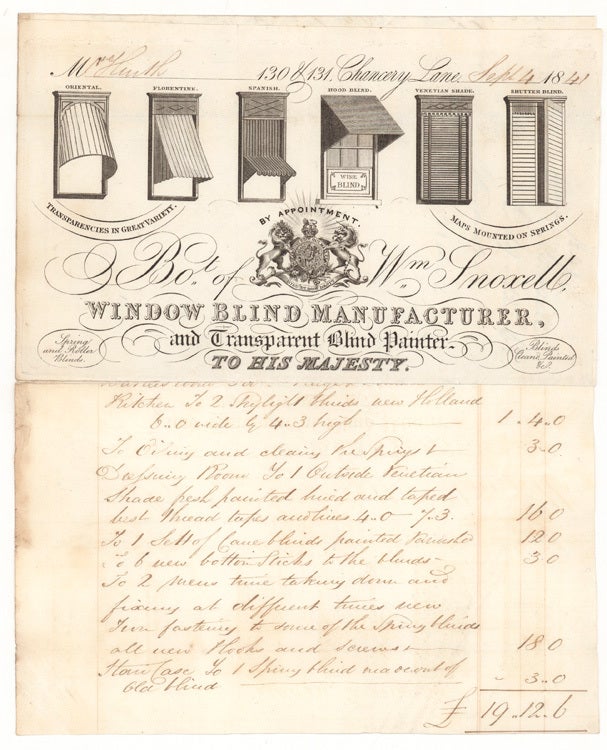 Mrs Heath 130 & 131, Chancery Lane. Sept 4 1841
ORIENTAL. FLORENTINE. SPANISH. HOOD BLIND. VENETIAN SHADE. SHUTTER BLIND.
WIRE
BLIND
TRANSPARENCIES IN GREAT VARIETY.
BY APPOINTMENT
MAPS MOUNTED ON SPRINGS.
Bo.t of Wm Snoxell,
WINDOW BLIND MANUFACTURER,
Spring
and Roller
Blinds.
and Transparent Blind Painter.
Blinds
Cleand, Painted
&c.
TO HIS MAJESTY.
Kitchen To 2 Skylight blinds new Holland
6..0 wide by 4..3 high 1..4..0
To Oiling and cleaning the Springs & 3..0
Dressing Room To 1 Outside Venetian
Shade fresh painted lined and taped
best thread tapes and lines 4..0 - 7..3. 16 0
To 1 Sett of Cane blinds painted Varnished 12 0
To 6 new bottom Sticks to the blinds - 3 0
To 2 mens time taking down and
fixing at different times new
Iron fastning to some of the Spring blinds
all new Hooks and screws & 18 0
Stair Case To 1 Spring blind made out of
old blind " 3..0
£ 19..12..6